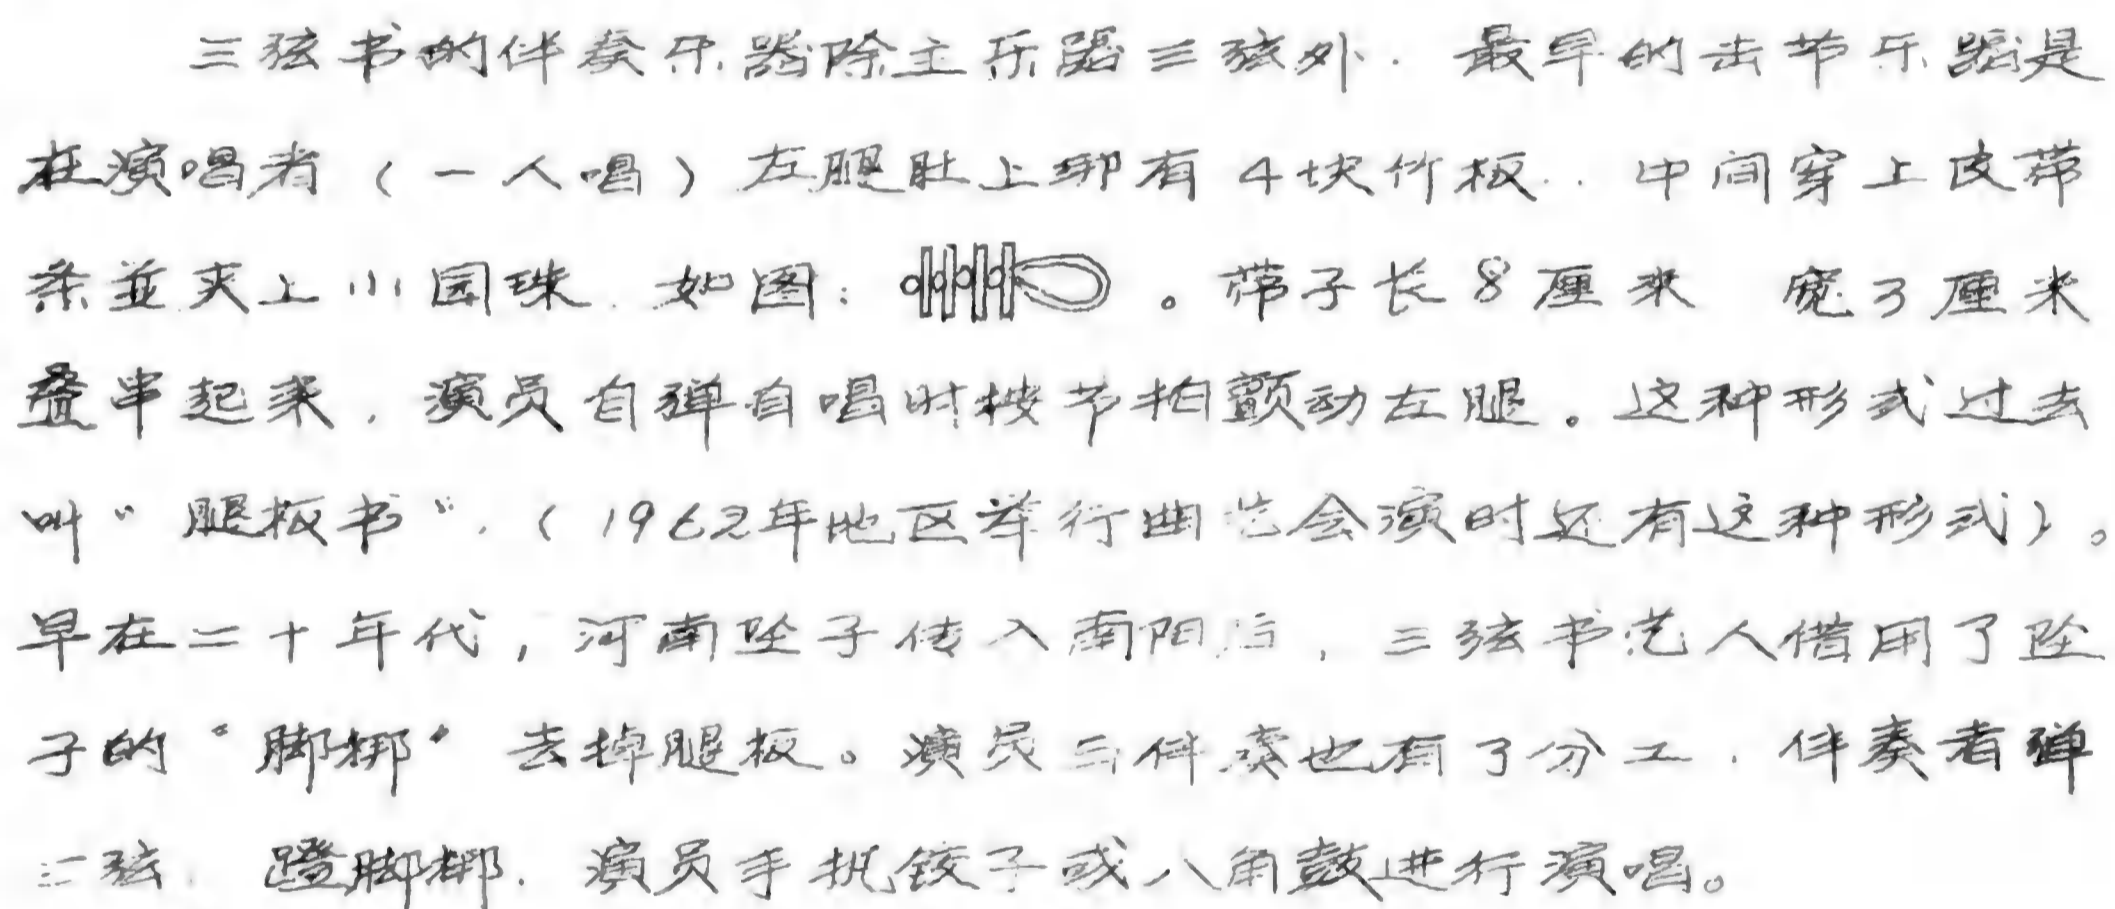 三弦书的伴奏乐器除主乐器三弦外. 最早的击节乐器是
在演唱者（一人唱）左腿肚上绑有4块竹板. 中间穿上皮带
条並夹上小园珠. 如图：。带子长8厘米 宽3厘米
叠串起来. 演员自弹自唱时按节拍颤动左腿。这种形式过去
叫“腿板书”.（1962年地区举行曲艺会演时还有这种形式）。
早在二十年代，河南坠子传入南阳后，三弦书艺人借用了坠
子的“脚梆”去掉腿板。演员与伴奏也有了分工. 伴奏者弹
三弦. 蹬脚梆. 演员手执铰子或八角鼓进行演唱。